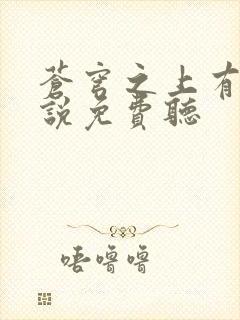 蒼穹之上有
說免費聽
唔嚕嚕